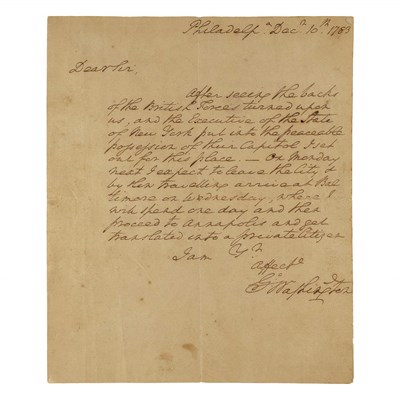 Philadelpa Decr. 10th. 1783
Dear Sir,
After seeing the backs
of the British Forces turned upon
us, and the Executive of the State
of New York put into the peaceable
possession of their Capitol I set
out for this place. — On Monday
next I expect to leave the City &
by travelling arrive at Bal
timore on Wednesday, where I
will spend one day and then
proceed to Annapolis and get
translated into a private Citizen
I am Yr.
Affecte
Go Washington